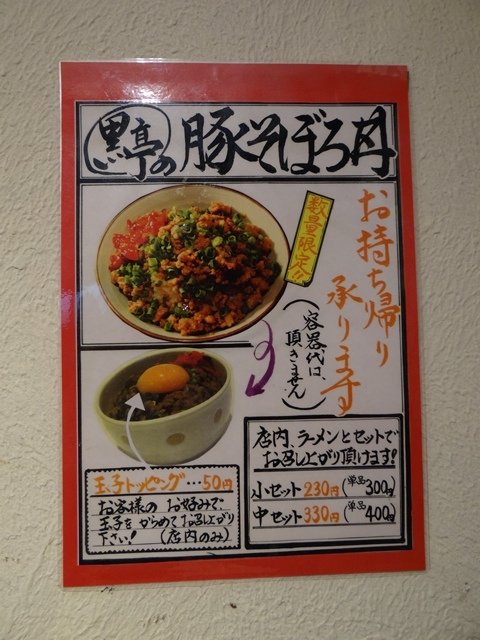 黒亭の豚そぼろ丼
数量限定!!
お持ち帰り
承ります
(容器代は、
頂きません)
店内、ラーメンとセットで
お召し上がり頂けます!
小セット230円(単品300円)
中セット330円(単品400円)
玉子トッピング…50円
お客様のお好みで、
玉子をからめてお召し上がり
下さい!(店内のみ)